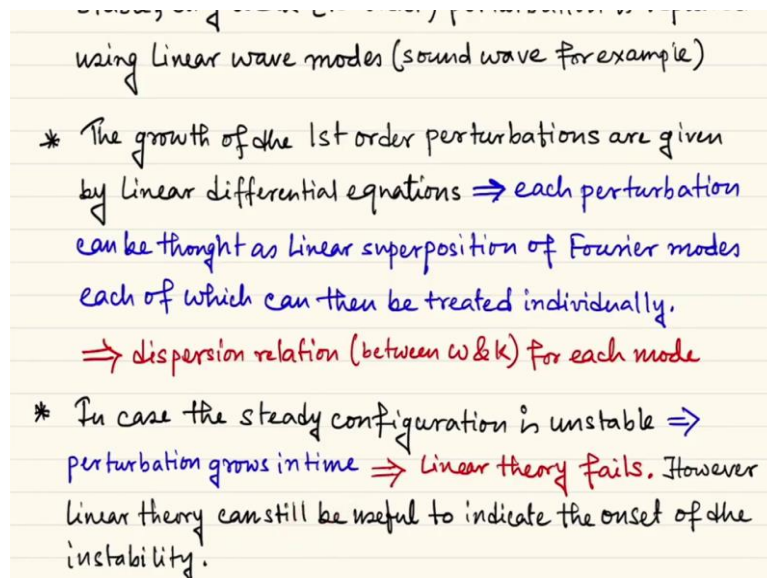 using Linear wave modes (sound wave for example)
* The growth of the 1st order perturbations are given
by Linear differential equations ⇒ each perturbation
can be thought as Linear superposition of Fourier modes
each of which can then be treated individually.
⇒ dispersion relation (between ω & k) for each mode
* In case the steady configuration is unstable ⇒
perturbation grows in time ⇒ Linear theory fails. However
Linear theory can still be useful to indicate the onset of the
instability.